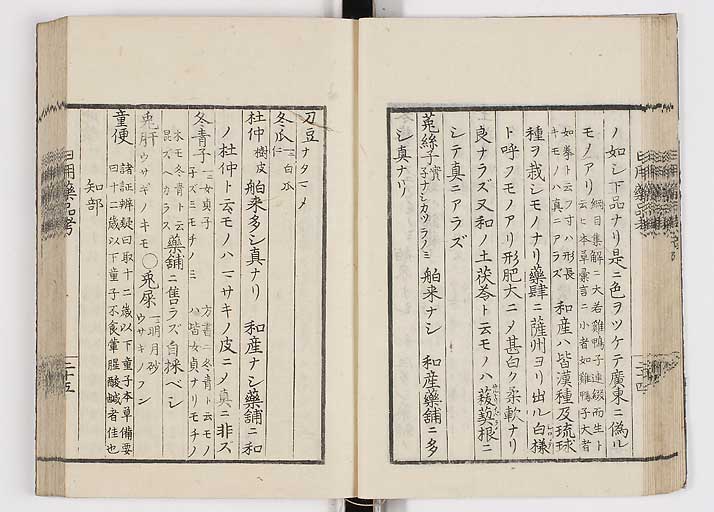 ノ如シ下品ナリ是ニ色ヲツケテ廣東ニ偽ル
モノアリ 綱目集解ニ大若雞鴨子連綴而生ト
云ヒ本草彙言ニ小者如雞鴨子大者
如拳ト云フ寸ハ形長
キモノハ真ニアラズ 和産ハ皆漢種及琉球
種ヲ栽シモノナリ藥肆ニ薩州ヨリ出ル白様
ト呼フモノアリ形肥大ニメ甚白ク柔軟ナリ
良ナラズ又和ノ土茯苓ト云モノハ菝葜根ニ
シテ真ニアラズ
菟絲子 實
子ナシカツラノミ 舶来ナシ 和産藥舖ニ多
シ真ナリ
日用藥品考
刀豆 ナタマメ
冬瓜仁 一ニ白瓜
杜仲 樹皮 舶来多シ真ナリ 和産ナシ藥舖ニ和
ノ杜仲ト云モノハマサキノ皮ニノ真ニ非ズ
冬青子 一ニ女貞子
子ズミモチノミ 方書ニ冬青ト云モノ
ハ皆女貞ナリモチノ
木モ冬青ト云
混ズベカラス 藥舖ニ售ラズ自採ベシ
兎肝 ウサギノキモ ○兎屎 一ニ明月砂
ウサキノフン
童便 諸証辨疑曰取十二歳以下童子本草備要
曰十二歳以下童子不食葷腥酸鹹者佳也
知部
日用藥品考
二十五